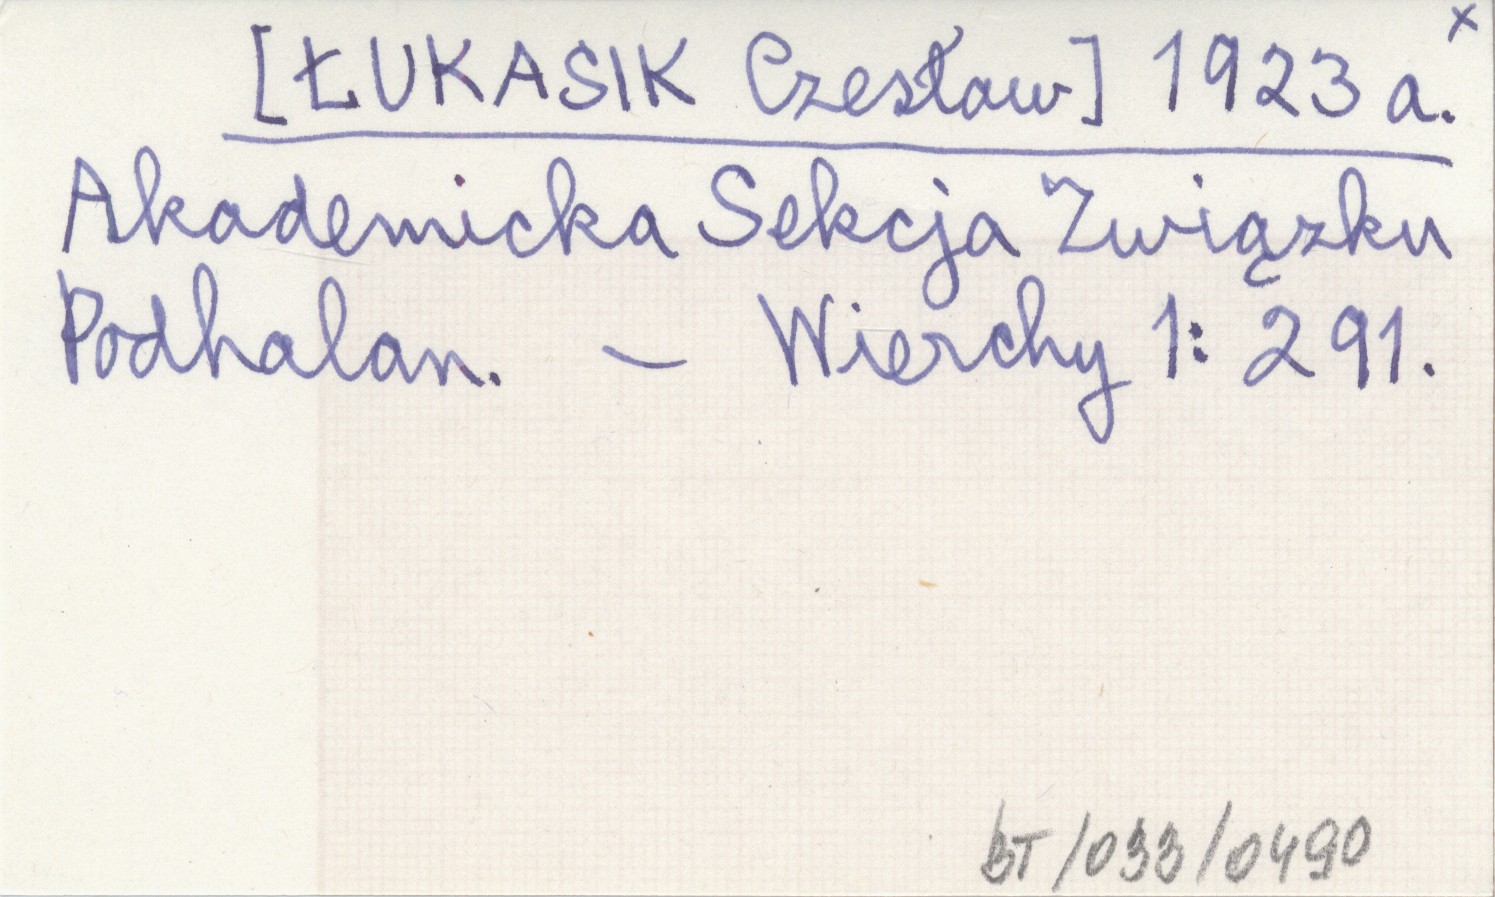 x
[ŁUKASIK Czesław] 1923 a.
Akademicka Sekcja Związku
Podhalan. — Wierchy 1: 291.
BT/033/0490